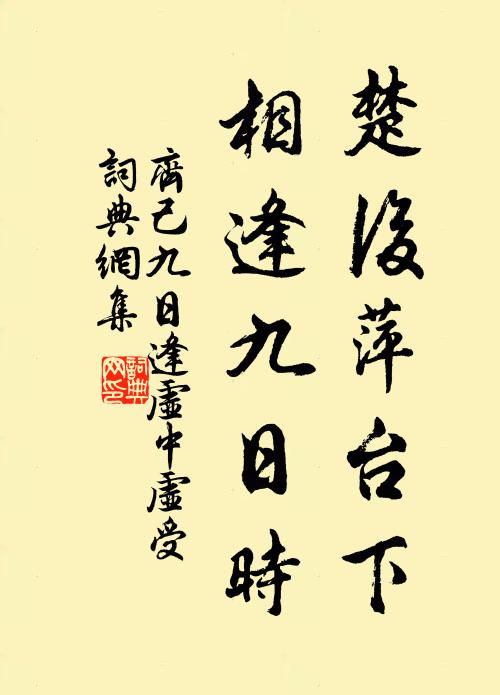 楚後萍台下
相逢九日時
齊己九日逢虛中虛受
詞典網集
詞典
网印